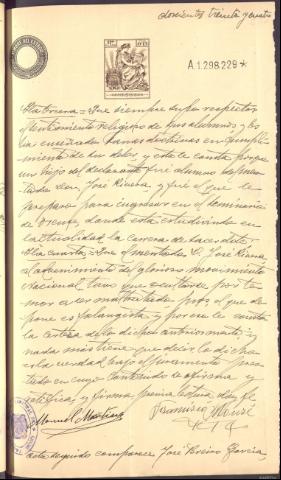 doscientos treinta y cuatro
A1.298.229*
A la tercera = Que siempre supo respectar
el sentimiento religioso de sus alumnos y les
en cumpli
miento de su deber, y esto le consta porque
un hijo del declarante fue alumno del men
tado Don José Rivera, y fue el que le
preparó para ingresar en el seminario
de Orense, donde está estudiando en
la actualidad la carrera de sacerdote =
A la cuarta = Que el mentado D. José Rivera
al advenimiento del glorioso movimiento
Nacional tuvo que ocultarse por te
mor a ser maltratado pues el que de
pone es falangista y por eso le consta
la certeza de lo dicho anteriormente y
nada más tiene que decir, lo dicho
es la verdad bajo el juramento pres
tado en cuyo contenido se afirma y
ratifica, y firma previa lectura doy fe
Manuel Martínez
Francisco
Acto seguido comparece José Boeiro García